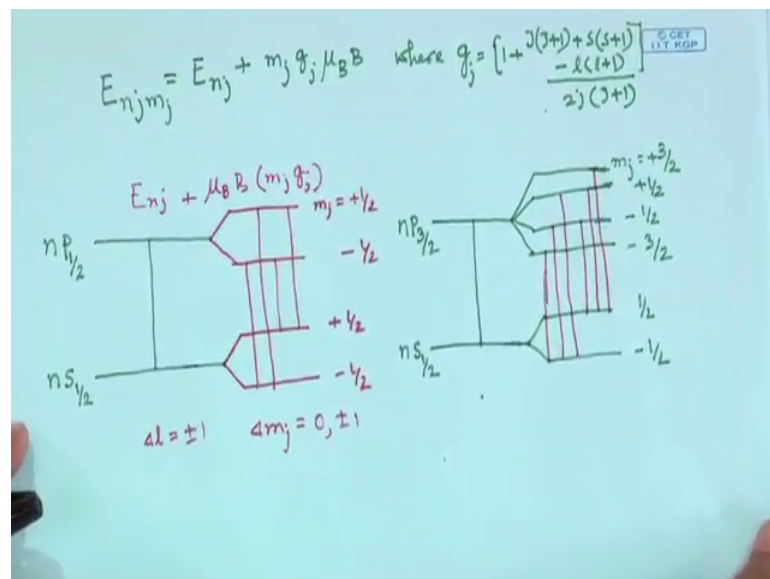 E_{njm_j} = E_{nj} + m_j g_j μ_B B where g_j = [1 + J(J+1) + S(S+1) - l(l+1) / 2j(J+1)]
© CET
I.I.T. KGP
E_{nj} + μ_B B (m_j g_j)
nP_{1/2}
m_j = +1/2
- 1/2
nS_{1/2}
+ 1/2
- 1/2
Δl = ±1 Δm_j = 0, ±1
nP_{3/2}
m_j = +3/2
+1/2
- 1/2
- 3/2
nS_{1/2}
1/2
- 1/2